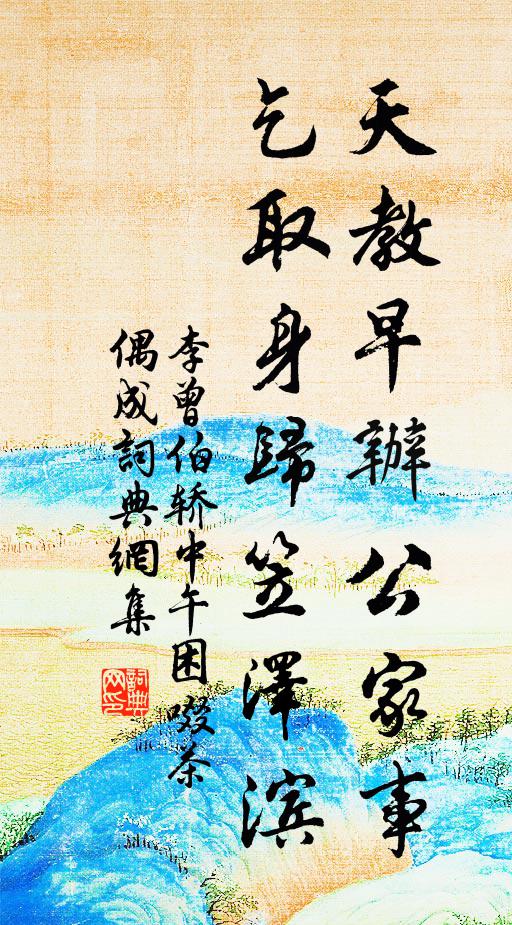 天教早辦公家事
乞取身歸笠澤滨
李曾伯轿中午困啜茶
偶成詞典網集
詞典
网印